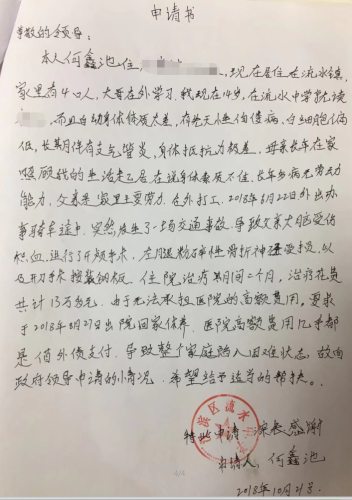 申请书
尊敬的领导:
本人何鑫池住, 现在居住在流水镇,
家里有4口人, 大哥在外学习, 我现在14岁, 在流水中学就读
而且自幼身体体质太差, 有先天性佝偻病、白细胞偏
低, 长期伴有支气管炎, 身体抵抗力极差, 母亲长年在家
照顾我的生活起居在说身体素质不佳, 长年多病无劳动
能力, 父亲是家里主要劳力, 在外打工, 2018年6月22日外出办
事骑车途中, 突然发生了一场交通事故, 导致父亲大脑受伤
积血, 进行了开颅手术, 左腿粉碎性骨折神经受损, 以
及开刀手术按装钢板, 住院治疗期间二个月, 治疗花费
共计13万多元, 由于无法承担医院的高额费用, 要求
于2018年8月27日出院回家休养, 医院高额费用几乎都
是借外债支付, 导致整个家庭陷入困难状态, 故向
政府领导申请的小情况, 希望给予适当的帮扶。
特此申请 深表感谢
申请人: 何鑫池
2018年10月21号